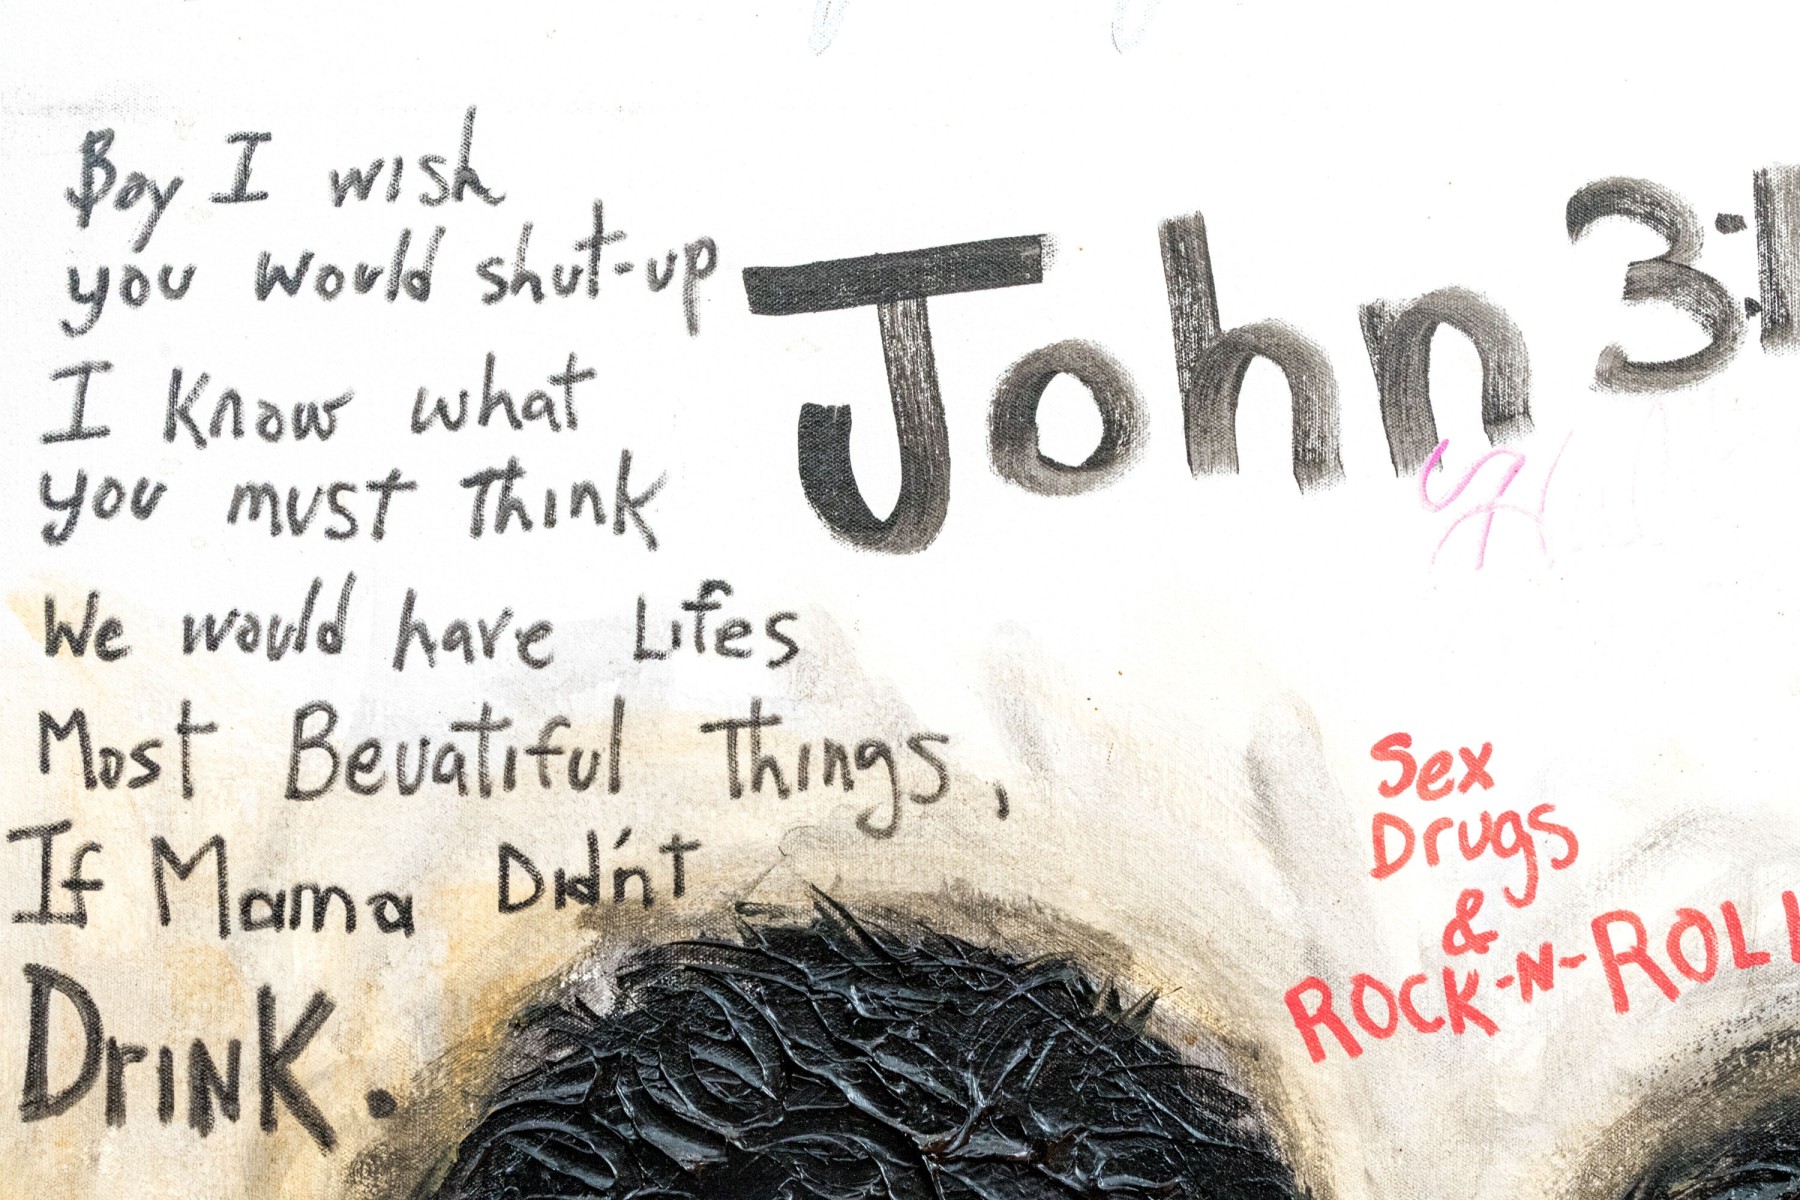 Boy I wish
you would shut-up
I Know what
you must Think
We would have Lifes
Most Beuatiful Things,
If Mama Didn't
DrinK.
John 3:1
Sex
Drugs
&
ROCK-N-ROLL